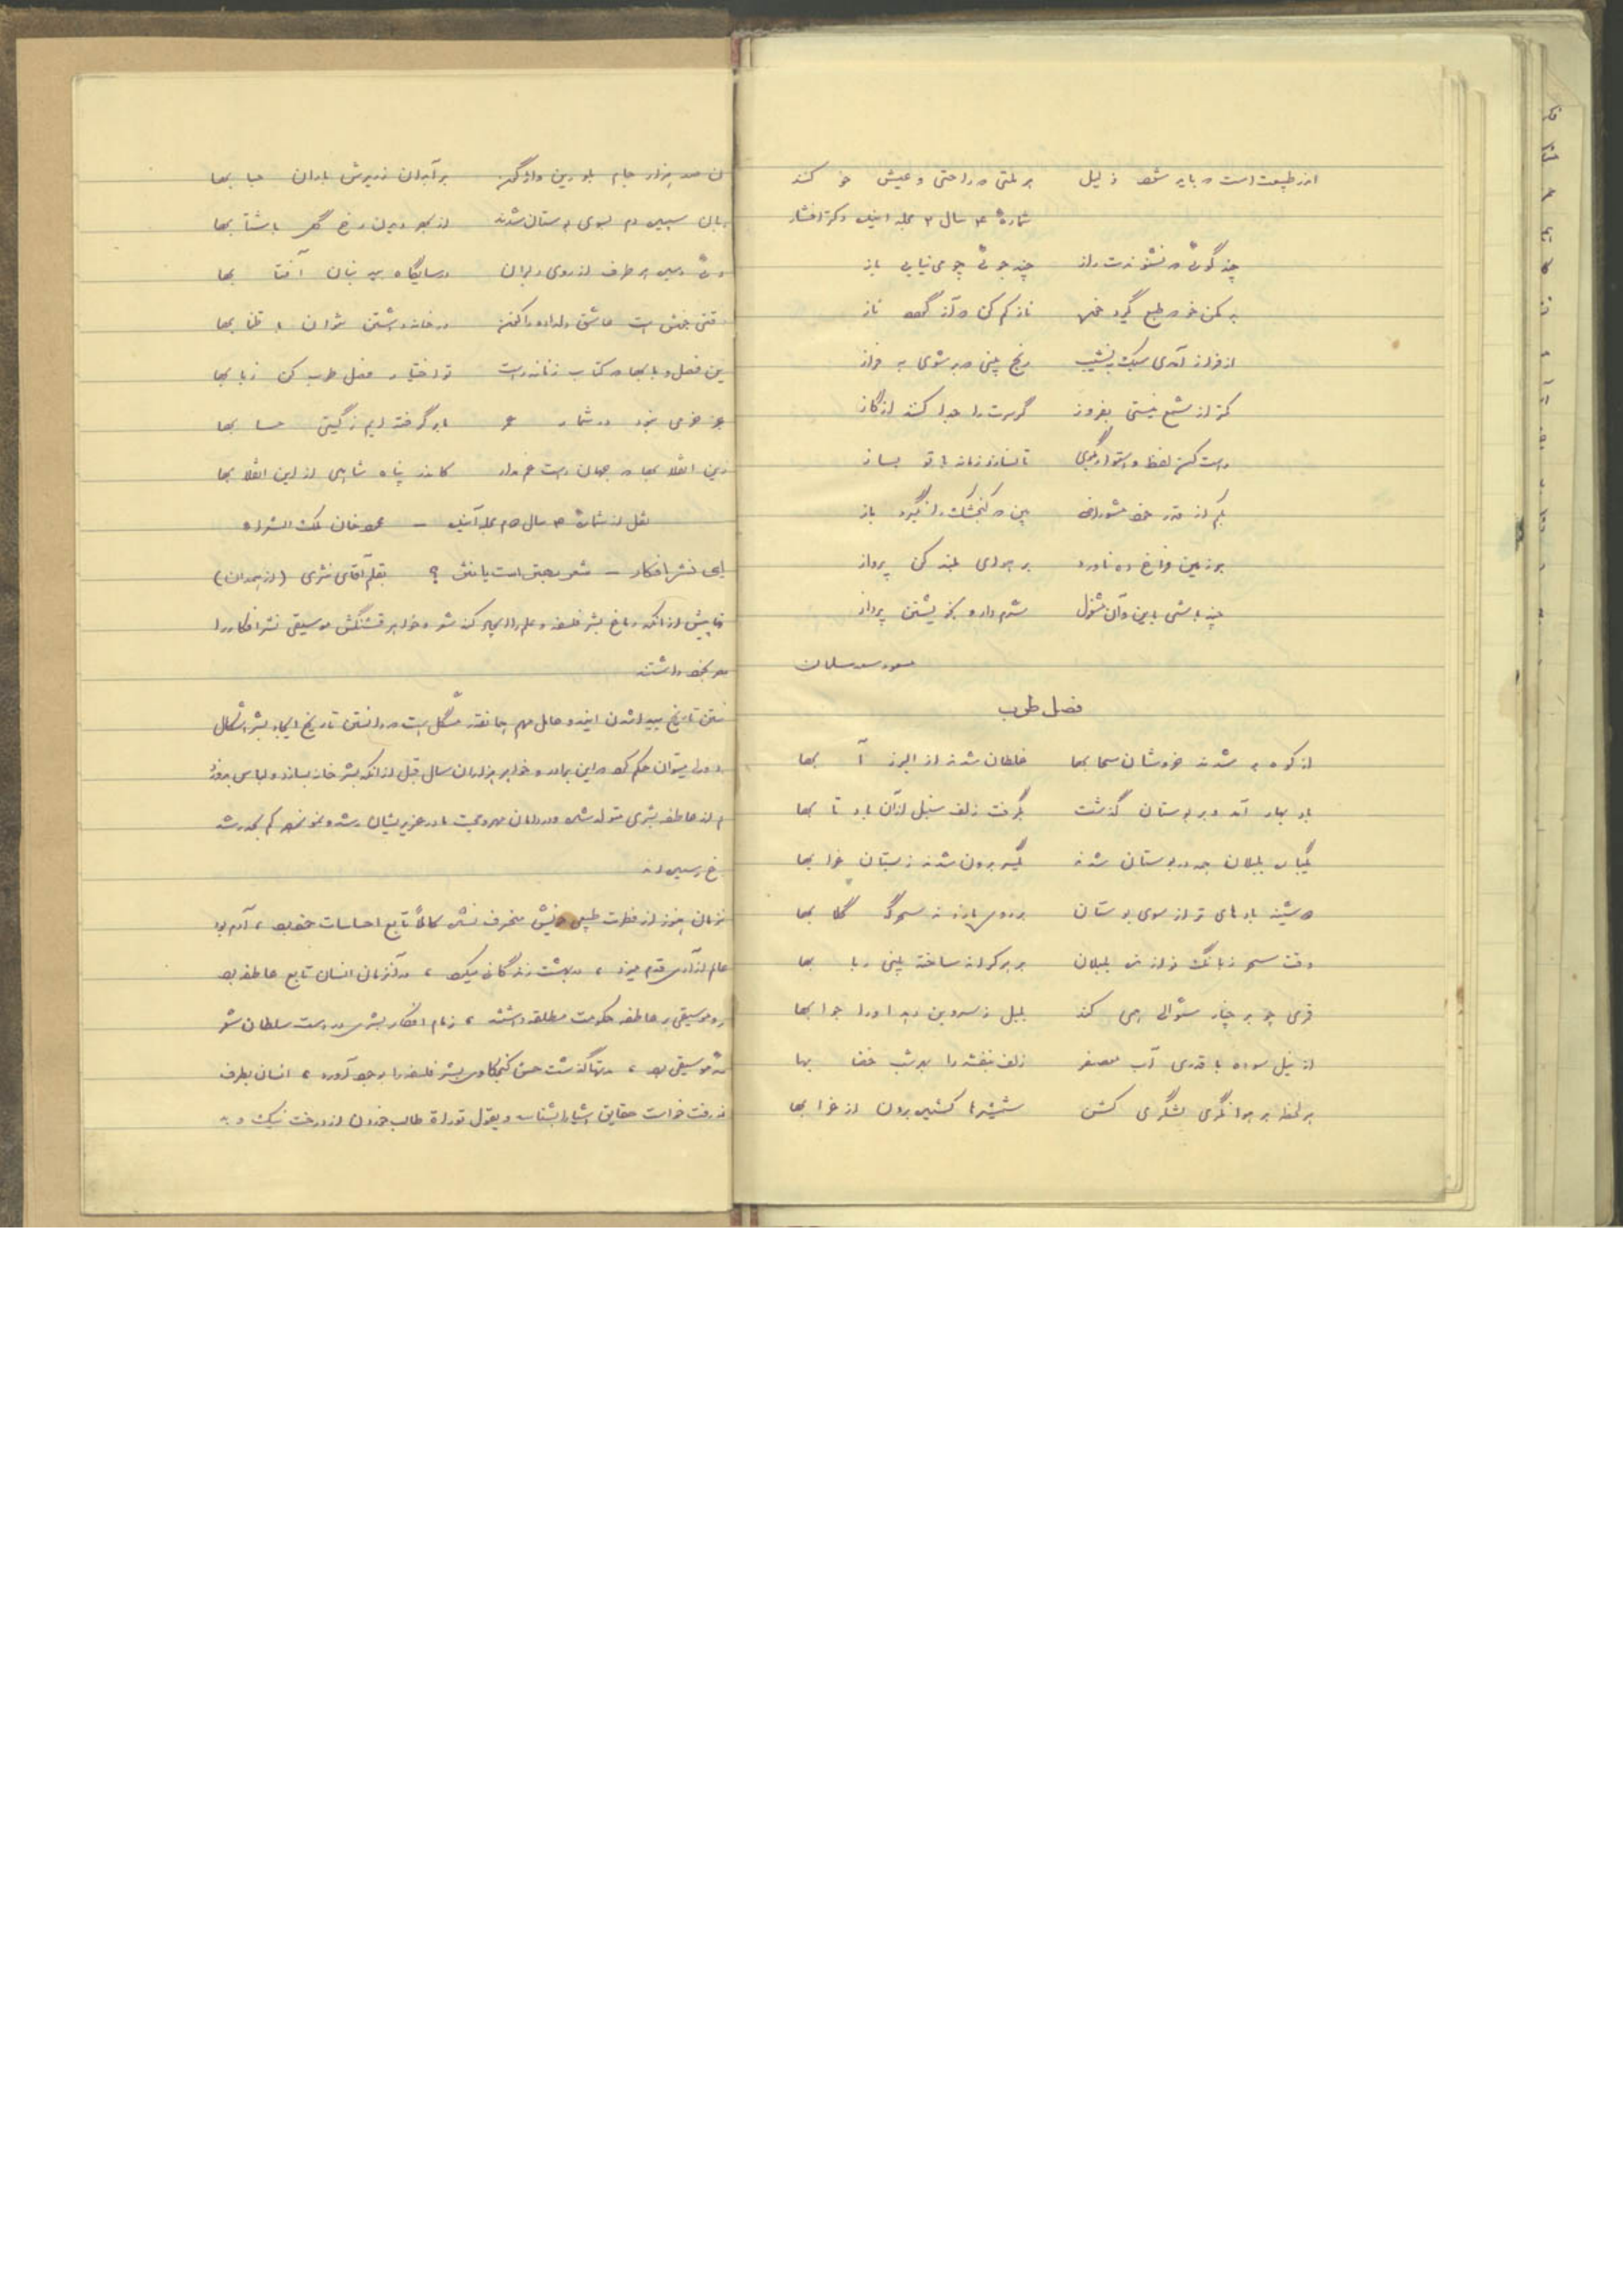 اندر طبیعت است که باید شود ذلیل    هر ملتی که راحتی و عیش خو کند
شمارهٔ ۴ سال ۳ مجله آینده دکتر افشار
چند گوئی که نشنوندت راز    چند جوئی چو می نیابی باز
بد مکن خو که طبع گیرد خو    ناز کم کن که آز گردد ناز
از فراز آمدی سبک به نشیب    رنج بینی که بر شوی به فراز
کمتر از شمع نیستی بفروز    گر سرت را جدا کنند از گاز
راست کن لفظ و استوار بگوی    تا نسازد زمانه با تو بساز
بکم از قدر خود مشو راضی    بین که گنجشک را نگیرد باز
بر زمین فراخ ده ناورد    بر هوای بلند کن پرواز
چند باشی باین و آن مشغول    شرم دار و بخویشتن پرداز
مسعود سعد سلمان
فصل طرب
از کوه بر شدند خروشان سحابها    غلطان شدند از البرز آبها
باد بهار آمد و بر بوستان گذشت    بگرفت زلف سنبل از آن باد تابها
یکباره بلبلان همه در بوستان شدند    یکسر برون شدند ز بستان غرابها
دوشینه بادهای تر از سوی بوستان    بر روی ما زدند سحرگه گلابها
وقت سحر ز بانگ نوازنده بلبلان    بر هر کرانه ساخته بینی ربابها
قمری چو بر چنار سئوالی همی کند    بلبل ز سرو بن دهد او را جوابها
از نیل سوده با قدری آب معصفر    زلف بنفشه را بود شب خضابها
هر لحظه بر هوا نگری لشگری کشن    شمشیرها کشیده برون از غرابها
ن صد هزار جام بلورین واژگونه    بر آبدان ز ریزش باران حبابها
سپیده دم بسوی بوستان شدند    از بهر دیدن رخ گل با شتابها
هر طرف از روی دلبران    در سایگاه بید بنان آفتابها
وقتی خوش است عاشق دلداده را کنون    در خانه داشتن نتوان با طنابها
این فصل و بابها که کتاب زمانه راست    تو اختیار فصل طرب کن ز بابها
جز خرمی نبود در شمار عمر    ما بر گرفته ایم ز گیتی حسابها
زین انقلابها که جهان راست غم مدار    کاندر پناه شاهی از این انقلابها
نقل از شمارهٔ ۳ سال ۱۵ مجله آینده – محمود خان ملک الشعراء
نشر افکار – شعر بهتر است یا نثر ؟ بقلم آقای نثری (از همدان)
پیش از آنکه دماغ بشر فلسفه و علم را ایجاد کند شعر و خواهر قشنگش موسیقی نشر افکار را
بعهده داشتند
تاریخ پیدا شدن این دو عامل مهم همانقدر مشکل است که دانستن تاریخ ایجاد بشر اشکال
دارد میتوان حکم کرد که این برادر و خواهر هزاران سال قبل از آنکه بشر خانه بسازد و لباس بدوزد
از عاطفه بشری متولد شده و در دامان مهر و محبت مادر عزیزشان رشد و نمو نموده کم کم بحد رشد
رسیده اند
هنوز از فطرت طبیعی خویش منحرف نشده کاملاً تابع احساسات خود بود ، آدم بود
عالم آزادی قدم میزد ، در بهشت زندگانی میکرد ، در آنزمان انسان تابع عاطفه بود
و موسیقی بر عاطفه حکومت مطلقه داشتند ، زمام افکار بشری در دست سلطان شعر
موسیقی بود ، مدتها گذشت حس کنجکاوی بشر فلسفه را بوجود آورد ، انسان بطرف
رفت خواست حقایق اشیاء را بشناسد و بقول توراة طالب خوردن از درخت نیک و بد